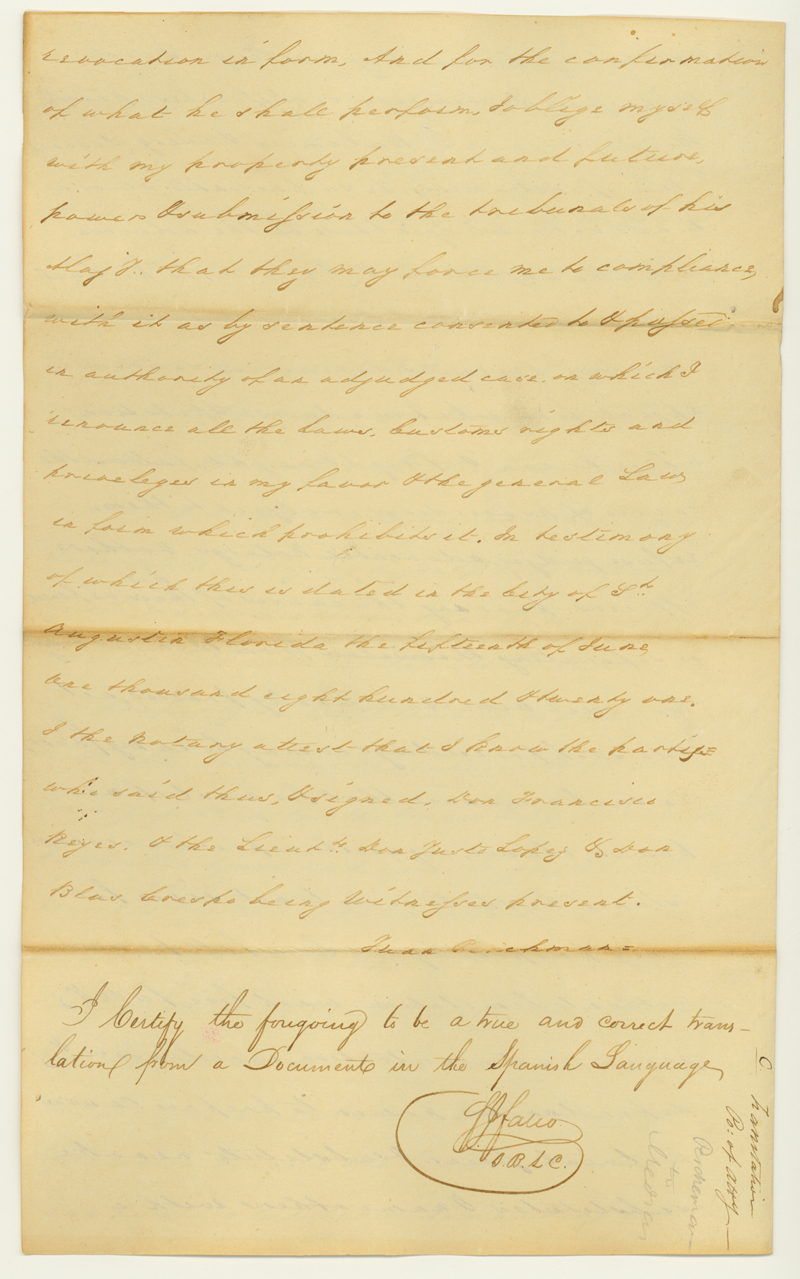 revocation in form, And for the confirmation
of what he shall perform, I oblige myself
with my property present and future,
powers & submission to the tribunals of his
Majy.. that they may force me to compliance,
with it as by sentence consented to & passed
in authority of an adjudged case. on which I
renounce all the Laws, Customs rights and
priveleges in my favor & the general Law
in form which prohibits it. In testimony
of which this is dated in the City of St
Augustin Florida the fifteenth of June,
One thousand eight hundred & twenty one.
I the Notary attest that I know the parties
who said thus, & signed. Don Francisco
Reyes. & the Lieuts Don Justo Lopez & Don
Blas Crespo being Witnesses present.
Juan
I Certify the foregoing to be a true and correct trans-
lation from a Document in the Spanish Language
S.B.L.C.
C
Translation
Po: of Atty
to